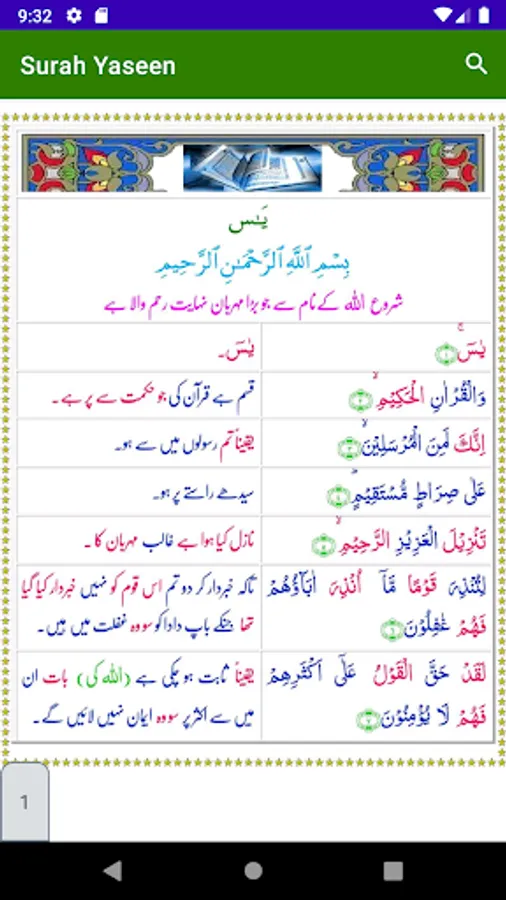 9:32
Surah Yaseen
يٰسٓ
بِسْمِ ٱللَّهِ ٱلرَّحْمَـٰنِ ٱلرَّحِيمِ
شروع اللہ کے نام سے جو بڑا مہربان نہایت رحم والا ہے
يٰسٓ ۚ﴿۱﴾
یٰسٓ۔
وَالْقُرْاٰنِ الْحَكِيْمِ ۙ﴿۲﴾
قسم ہے قرآن کی جو حکمت سے پر ہے۔
اِنَّكَ لَمِنَ الْمُرْسَلِيْنَ ۙ﴿۳﴾
یقیناً تم رسولوں میں سے ہو۔
عَلٰى صِرَاطٍ مُّسْتَقِيْمٍ ؕ﴿۴﴾
سیدھے راستے پر ہو۔
تَنْزِيْلَ الْعَزِيْزِ الرَّحِيْمِ ۙ﴿۵﴾
نازل کیا ہوا ہے غالب مہربان کا ۔
لِتُنْذِرَ قَوْمًا مَّاۤ اُنْذِرَ اٰبَآؤُهُمْ
فَهُمْ غٰفِلُوْنَ ﴿۶﴾
تاکہ خبردار کر دو تم اس قوم کو نہیں خبردار کیا گیا
تھا جنکے باپ دادا کو سو وہ غفلت میں ہیں۔
لَقَدْ حَقَّ الْقَوْلُ عَلٰۤى اَكْثَرِهِمْ
فَهُمْ لَا يُؤْمِنُوْنَ ﴿۷﴾
یقیناً ثابت ہو چکی ہے (اللہ کی) بات ان
میں سے اکثر پر سو وہ ایمان نہیں لائیں گے۔
1